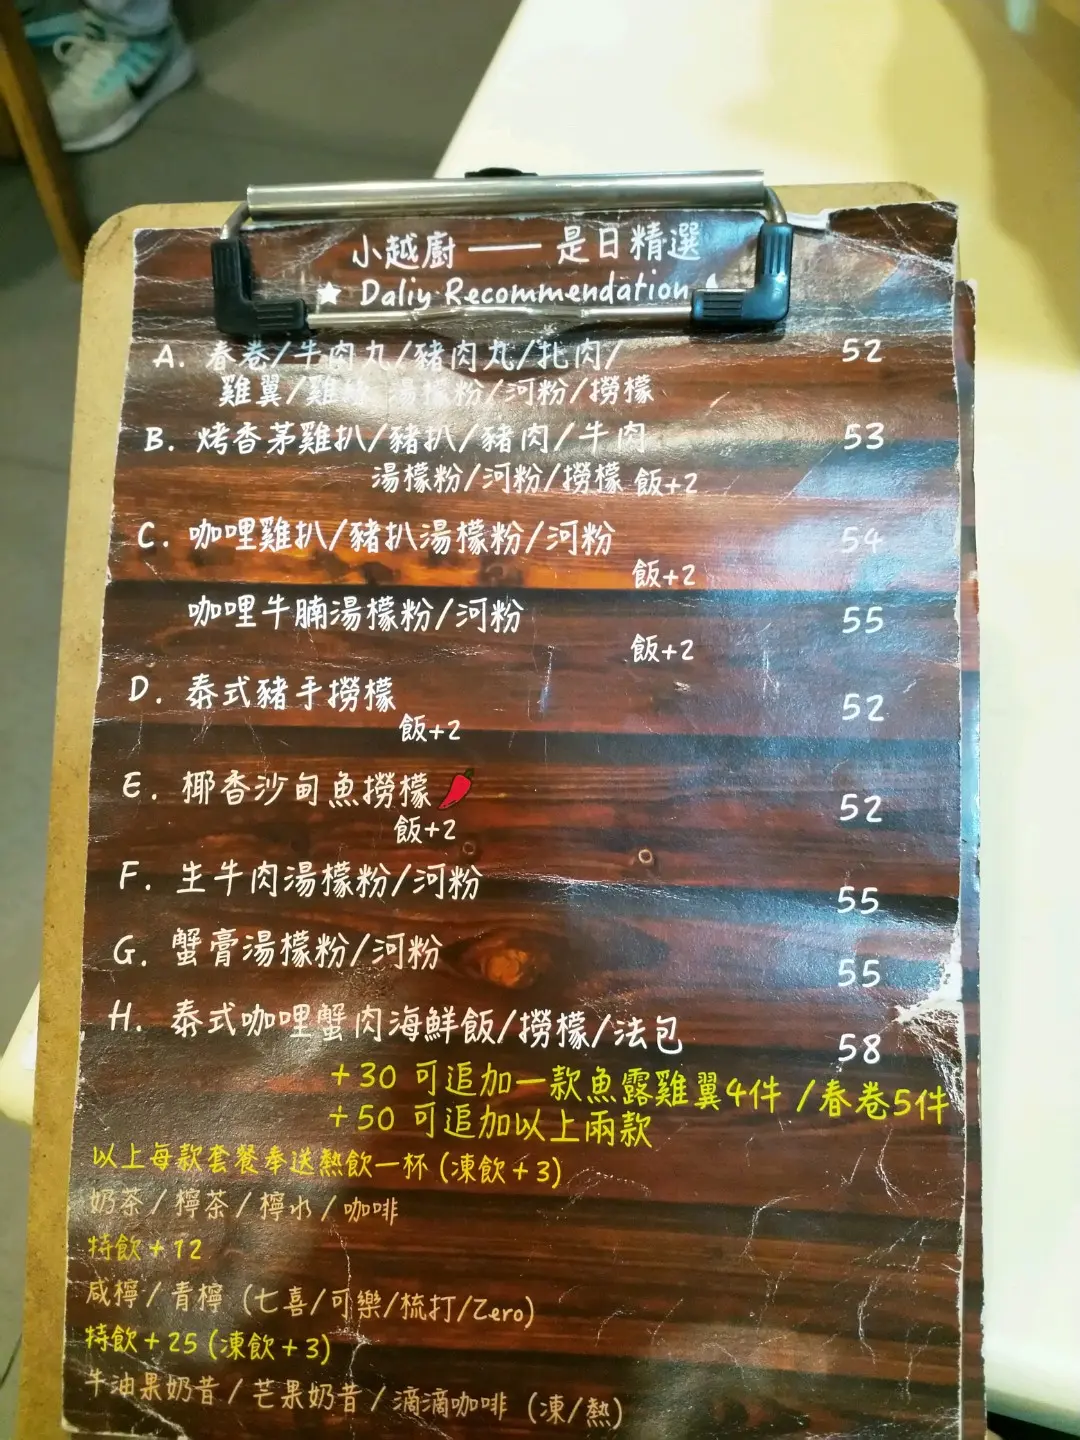 小越廚 —— 是日精選
★ Daliy Recommendation
A. 春卷/牛肉丸/豬肉丸/扎肉/ 52
雞翼/雞絲 湯檬粉/河粉/撈檬
B. 烤香茅雞扒/豬扒/豬肉/牛肉 53
湯檬粉/河粉/撈檬 飯+2
C. 咖哩雞扒/豬扒湯檬粉/河粉 54
飯+2
咖哩牛腩湯檬粉/河粉 55
飯+2
D. 泰式豬手撈檬 52
飯+2
E. 椰香沙甸魚撈檬 52
飯+2
F. 生牛肉湯檬粉/河粉 55
G. 蟹膏湯檬粉/河粉 55
H. 泰式咖哩蟹肉海鮮飯/撈檬/法包 58
+30 可追加一款魚露雞翼4件 /春卷5件
+50 可追加以上兩款
以上每款套餐奉送熱飲一杯 (凍飲+3)
奶茶/檸茶/檸水/咖啡
特飲+12
咸檸/青檸 (七喜/可樂/梳打/Zero)
特飲+25 (凍飲+3)
牛油果奶昔/芒果奶昔/滴滴咖啡 (凍/熱)